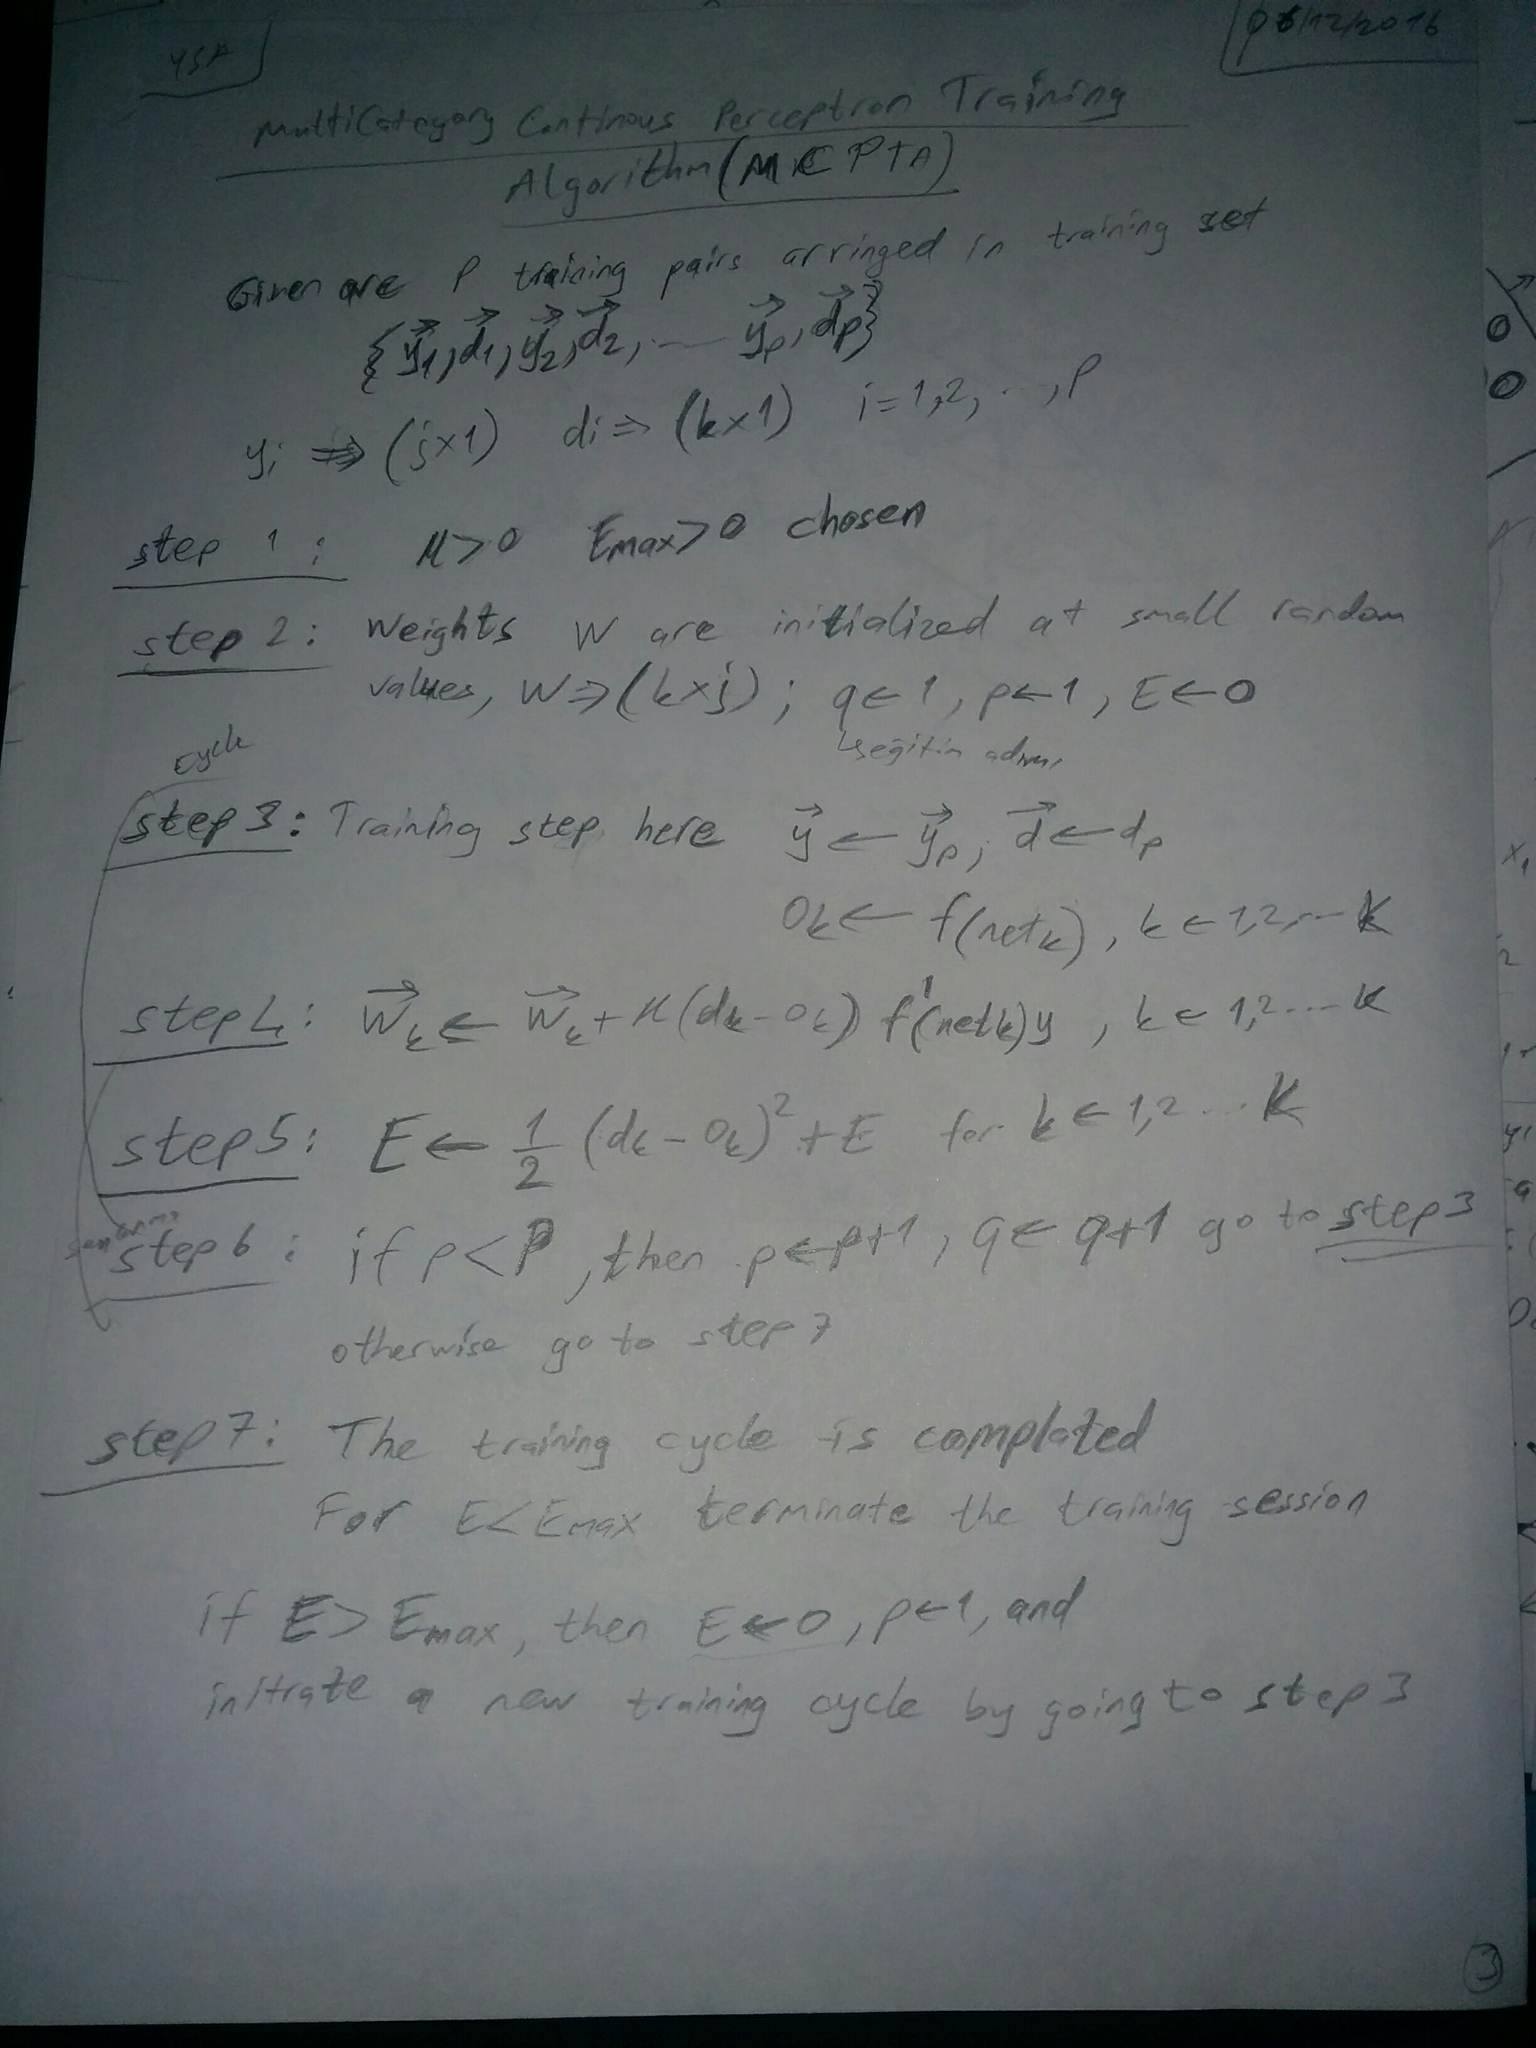 YSA
06/12/2016
MultiCategory Continous Perceptron Training
Algorithm (MCPTA)
Given are P training pairs arringed in training set
{y⃗1, d⃗1, y⃗2, d⃗2, .... y⃗p, d⃗p}
yi ⇒ (j×1) di ⇒ (k×1) i=1,2, ..., P
step 1: μ>0 Emax>0 chosen
step 2: Weights W are initialized at small random
values, W⇒(k×j); q←1, p←1, E←0
↳ eğitim adımı
Cycle
step 3: Training step here y⃗ ← y⃗p, d⃗ ← dp
Ok ← f(netk), k ← 1,2,... K
step 4: W⃗k ← W⃗k + μ(dk-ok) f'(netk)y, k ← 1,2.... K
step 5: E ← 1/2 (dk-Ok)² + E for k ← 1,2 ... K
step 6: if p<P, then p←p+1, q←q+1 go to step 3
otherwise go to step 7
step 7: The training cycle is complated
For E<Emax terminate the training session
if E>Emax, then E←0, p←1, and
initrate a new training cycle by going to step 3
3